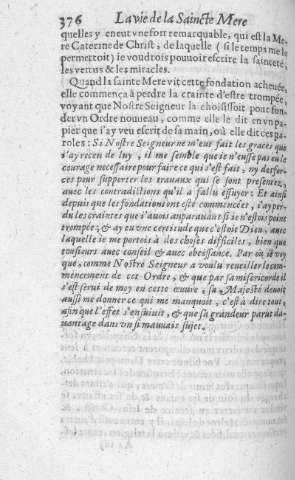 376 La vie de la Saincte Mere
quelles y eneut vne fort remarquable, qui est la Me-
re Caterine de Christ, de laquelle ( si le temps me le
permettoit) ie voudrois pouuoir escrire la sainteté,
les vertus & les miracles.
Quand la sainte Mere vit cette fondation acheuée,
elle commença à perdre la crainte d'estre trompée,
voyant que Nostre Seigneur la choisissoit pour fon-
der vn Ordre nouueau, comme elle le dit en vn pa-
pier que i'ay veu escrit de sa main, où elle dit ces pa-
roles: Si Nostre Seigneur ne m'eut fait les graces que
i'ay receu de luy, il me semble que ie n'eusse pas eu le
courage necessaire pour faire ce qui s'est fait, ny des for-
ces pour supporter les trauaux qui se sont presentez,
auec les contradictions qu'il a fallu essuyer: Et ainsi
depuis que les fondations ont esté commencées, i'ay per-
du les craintes que i'auois auparauant si ie n'estois point
trompée; & ay eu vne certitude que c'estoit Dieu, auec
laquelle ie me portois à des choses difficiles, bien que
tousiours auec conseil & auec obeïssance. Par où ie voy
que, comme Nostre Seigneur a voulu reueiller le com-
mencement de cet Ordre, & que par sa misericorde il
s'est serui de moy en cette œuure, sa Majesté deuoit
aussi me donner ce qui me manquoit, c'est à dire tout,
afin que l'effet s'ensuiuit, & que sa grandeur parut da-
uantage dans vn si mauuais sujet.